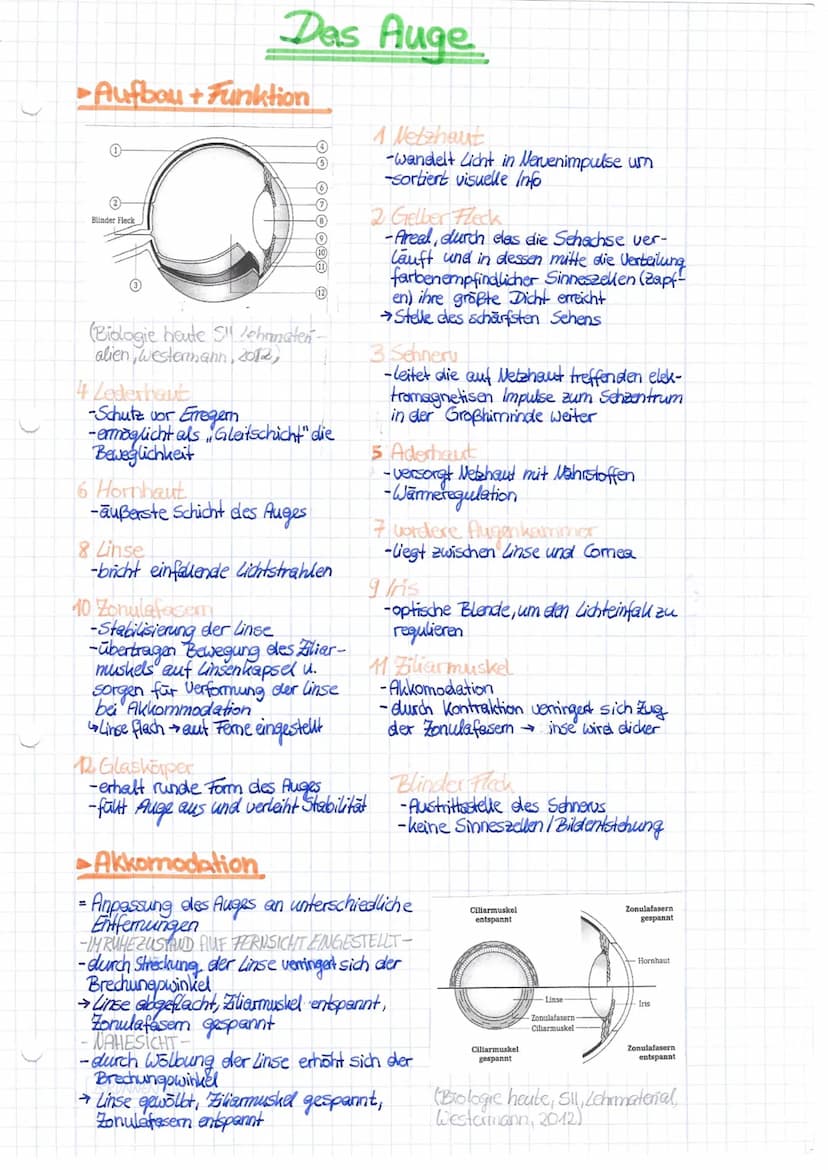 Das Auge
▸Aufbau + Funktion
1
2
Blinder Fleck
3
4
5
6
7
8
9
10
11
12
(Biologie heute SII Lehrmateri-
alien, Westermann, 2012)
1 Netzhaut
-wandelt Licht in Nervenimpulse um
-sortiert visuelle Info
2 Gelber Fleck
-Areal, durch das die Sehachse ver-
läuft und in dessen mitte die Verteilung
farbenempfindlicher Sinneszellen (Zapf-
en) ihre größte Dicht erreicht
→ Stelle des schärfsten Sehens
3 Sehnerv
-leitet die auf Netzhaut treffenden elek-
tromagnetisen Impulse zum Sehzentrum
in der Großhirnrinde weiter
4 Lederhaut
-Schutz vor Erregern
-ermöglicht als „Gleitschicht" die
Beweglichkeit
5 Aderhaut
-versorgt Netzhaut mit Nährstoffen
-Wärmeregulation
6 Hornhaut
-äußerste Schicht des Auges
7 vordere Augenkammer
-liegt zwischen Linse und Cornea
8 Linse
-bricht einfallende Lichtstrahlen
9 Iris
-optische Blende, um den Lichteinfall zu
regulieren
10 Zonulafasern
-Stabilisierung der Linse
-übertragen Bewegung des Ziliar-
muskels auf Linsenkapsel u.
sorgen für Verformung der Linse
bei Akkommodation
↳ Linse flach → auf Ferne eingestellt
11 Ziliarmuskel
- Akkomodation
- durch Kontraktion verringert sich Zug
der Zonulafasern → inse wird dicker
12 Glaskörper
-erhält runde Form des Auges
-füllt Auge aus und verleiht Stabilität
Blinder Fleck
-Austrittsstelle des Sehnervs
-keine Sinneszellen / Bildentstehung
▸Akkomodation
= Anpassung des Auges an unterschiedliche
Entfernungen
-IM RUHEZUSTAND AUF FERNSICHT EINGESTELLT-
-durch Streckung der Linse verringert sich der
Brechungswinkel
→ Linse abgeflacht, Ziliarmuskel entspannt,
Zonulafasern gespannt
- NAHESICHT -
-durch Wölbung der Linse erhöht sich der
Brechungswinkel
→ Linse gewölbt, Ziliarmuskel gespannt,
Zonulafasern entspannt
Ciliarmuskel
entspannt
Zonulafasern
gespannt
Hornhaut
Linse
Iris
Zonulafasern
Ciliarmuskel
Ciliarmuskel
gespannt
Zonulafasern
entspannt
(Biologie heute, SII, Lehrmaterial,
Westermann, 2012)